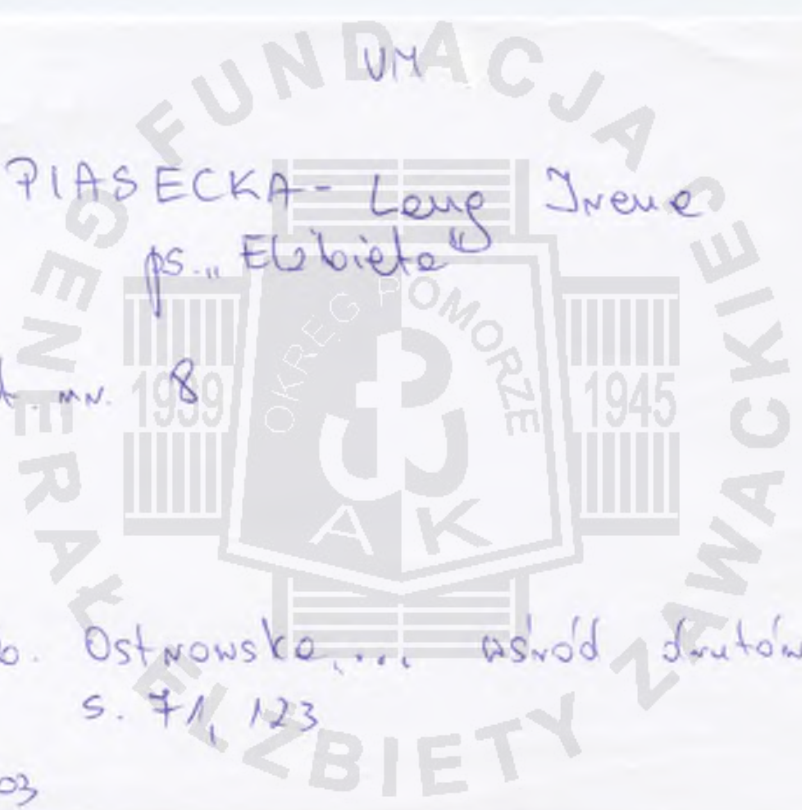 VM
PIASECKA - Lang Irena
ps. „Elżbieta"
mr. 8
Ostrowska,... wśród drutów
s. 71, 123
03
FUNDACJA
GENERAŁ ELŻBIETY ZAWACKIEJ
OKRĘG POMORZE
1939
1945
AK